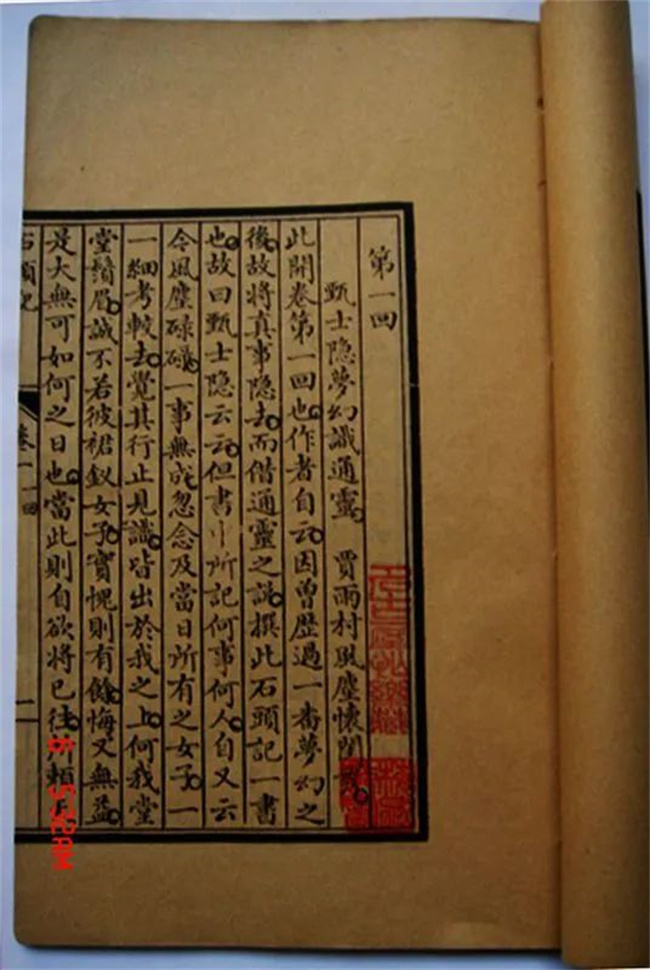 第一回
甄士隐夢幻識通靈。 賈雨村風塵懷閨秀。
此開卷第一回也。作者自云。因曾歷過一番夢幻之
後。故將真事隐去。而借通靈之說。撰此石頭記一書
也。故曰甄士隐云云。但書中所記何事何人。自又云
今風塵碌碌。一事無成忽念及當日所有之女子。一
一細考較去。覺其行止見識。皆出於我之上。何我堂
堂鬚眉。誠不若彼裙釵女子。實愧則有餘。悔又無益。
是大無可如何之日也。當此則自欲將已往。所賴上
石頭記 卷一 一回 一
5:32AM